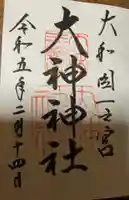 大和国一之宮
大神神社
令和五年二月十四日